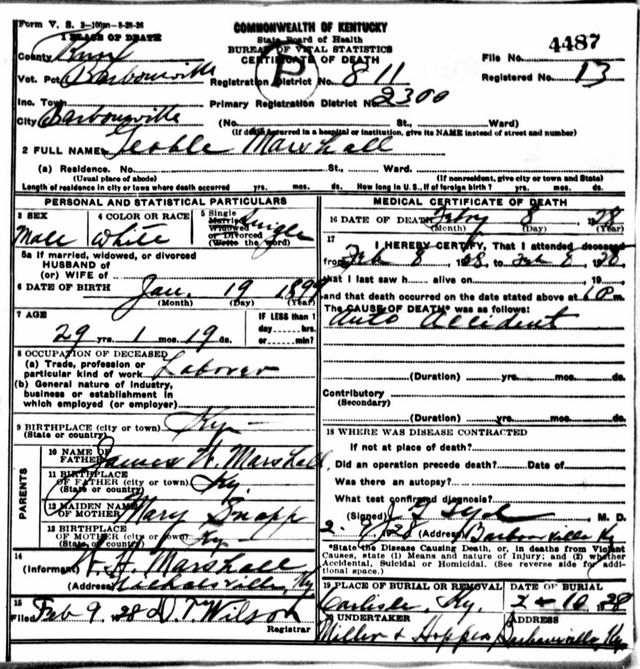 Form V. S. 2-100m-8-28-26
COMMONWEALTH OF KENTUCKY
State Board of Health
BUREAU OF VITAL STATISTICS
CERTIFICATE OF DEATH
1 PLACE OF DEATH
County Knox
File No. 4487
Vot. Pct. Barbourville
Registration District No. 811
Registered No. 13
P
Inc. Town
Primary Registration District No. 2300
City Barbourville (No. St., Ward)
(If death occurred in a hospital or institution, give its NAME instead of street and number)
2 FULL NAME Marshall
(a) Residence. No. St., Ward.
(Usual place of abode) (If nonresident, give city or town and State)
Length of residence in city or town where death occurred yrs. mos. ds. How long in U.S., if of foreign birth? yrs. mos. ds.
PERSONAL AND STATISTICAL PARTICULARS
3 SEX Male
4 COLOR OR RACE White
5 Single Married Widowed or Divorced (Write the word) Single
5a If married, widowed, or divorced
HUSBAND of
(or) WIFE of
6 DATE OF BIRTH Jan. 19 1899
(Month) (Day) (Year)
7 AGE 29 yrs. 1 mos. 19 ds.
IF LESS than 1 day hrs. or min?
8 OCCUPATION OF DECEASED
(a) Trade, profession or particular kind of work Laborer
(b) General nature of industry, business or establishment in which employed (or employer)
9 BIRTHPLACE (city or town)
(State or country) Ky
PARENTS
10 NAME OF FATHER James W. Marshall
11 BIRTHPLACE OF FATHER (city or town)
(State or country) Ky.
12 MAIDEN NAME OF MOTHER Mary Snapp
13 BIRTHPLACE OF MOTHER (city or town)
(State or country) Ky
14 (Informant) Marshall
(Address) Nicholasville, Ky
15 Filed Feb 9, 28 D. T. Wilson
Registrar
MEDICAL CERTIFICATE OF DEATH
16 DATE OF DEATH Feby 8 1928
(Month) (Day) (Year)
17 I HEREBY CERTIFY, That I attended deceased
from Feb 8, 1928, to Feb 8, 1928
that I last saw h alive on , 19
and that death occurred on the date stated above at 6 P m.
The CAUSE OF DEATH* was as follows:
Auto Accident
(Duration) yrs. mos. ds.
Contributory
(Secondary)
(Duration) yrs. mos. ds.
18 WHERE WAS DISEASE CONTRACTED
If not at place of death?
Did an operation precede death? Date of
Was there an autopsy?
What test confirmed diagnosis?
(Signed) M. D.
2-9, 1928 (Address) Barbourville Ky
*State the Disease Causing Death, or, in deaths from Violent
Causes, state (1) Means and nature of Injury; and (2) whether
Accidental, Suicidal or Homicidal. (See reverse side for addi-
tional space.)
19 PLACE OF BURIAL OR REMOVAL Carlisle, Ky.
DATE OF BURIAL 2-10, 1928
20 UNDERTAKER Miller & Hopper
ADDRESS Barbourville, Ky.